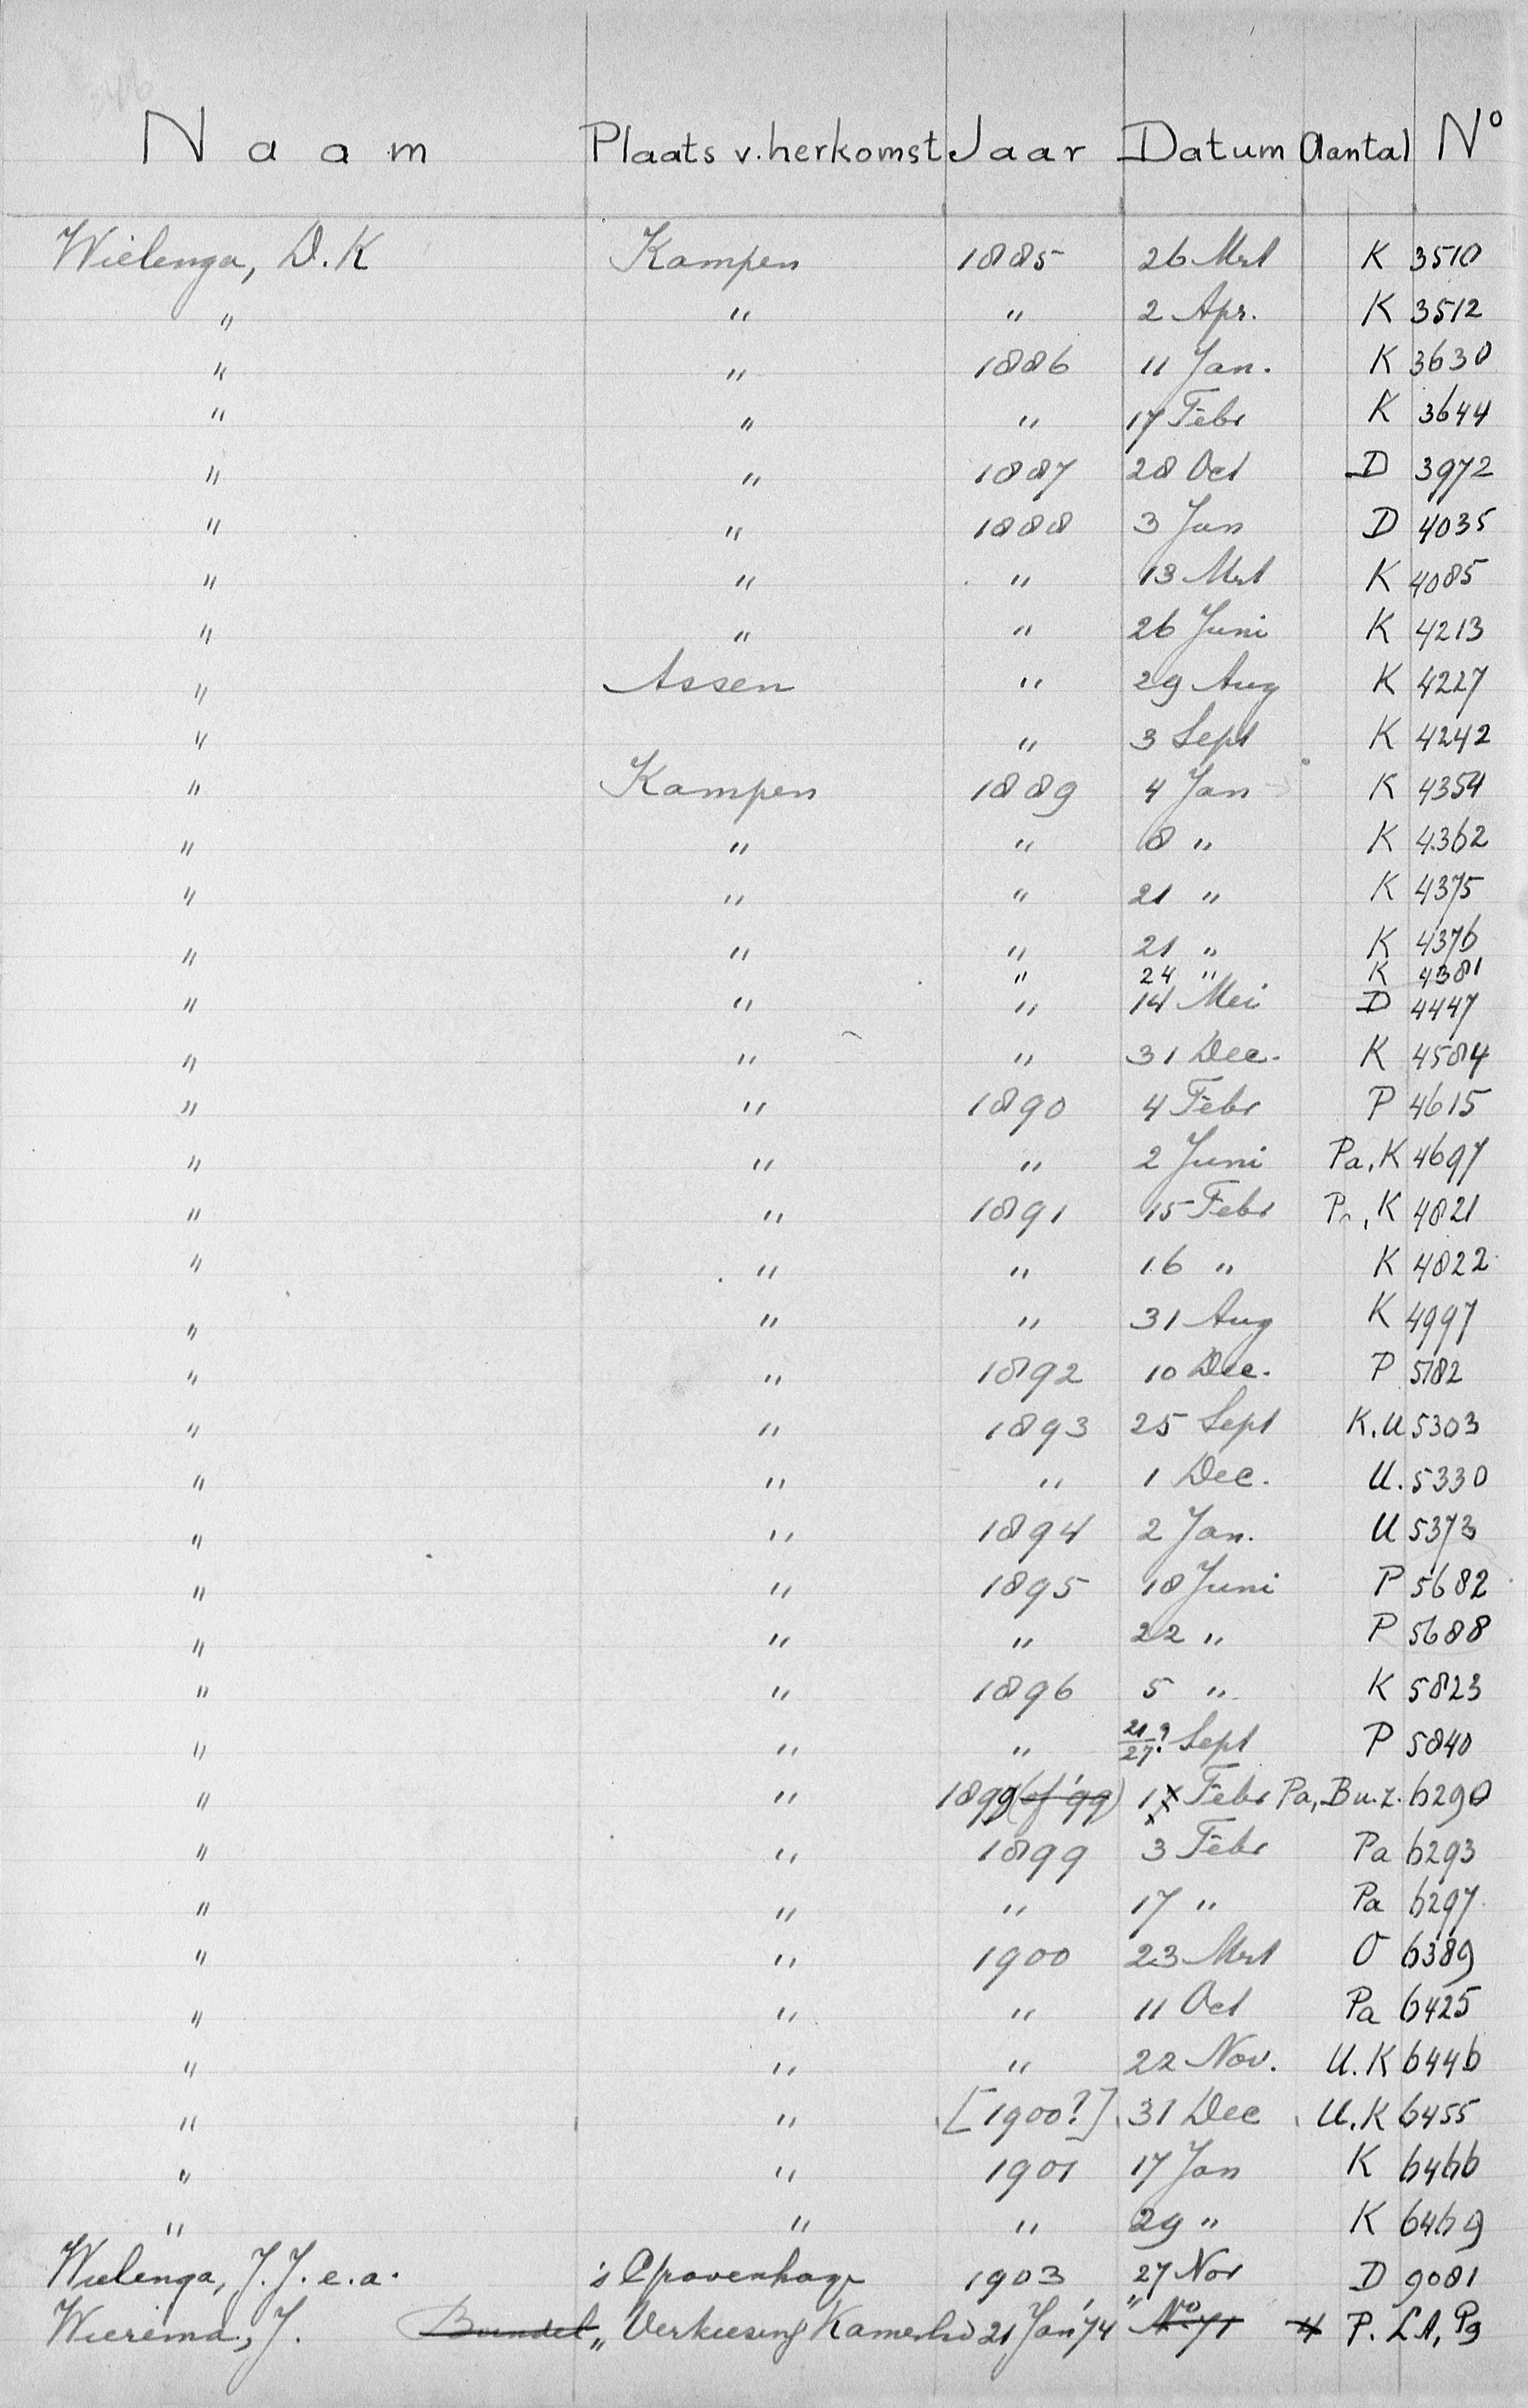 Naam Plaats v. herkomst Jaar Datum Aantal No
Wielenga, D.K Kampen 1885 26 Mrt K 3510
" " " 2 Apr. K 3512
" " 1886 11 Jan. K 3630
" " " 17 Febr K 3644
" " 1887 28 Oct D 3972
" " 1888 3 Jan D 4035
" " " 13 Mrt K 4085
" " " 26 Juni K 4213
" Assen " 29 Aug K 4227
" " 3 Sept K 4242
" Kampen 1889 4 Jan K 4354
" " " 8 " K 4362
" " " 21 " K 4375
" " " 21 " K 4376
" 24 " K 4381
" " " 14 Mei D 4447
" " " 31 Dec. K 4584
" " 1890 4 Febr P 4615
" " " 2 Juni Pa, K 4697
" " 1891 15 Febr Pa, K 4821
" " " 16 " K 4822
" " " 31 Aug K 4997
" " 1892 10 Dec. P 5182
" " 1893 25 Sept K. U 5303
" " " 1 Dec. U. 5330
" " 1894 2 Jan. U 5373
" " 1895 18 Juni P 5682
" " " 22 " P 5688
" " 1896 5 " K 5823
" " " 21/27? Sept P 5840
" " 1899 (of '99) 1 Febr Pa, Bu.z. 6290
" " 1899 3 Febr Pa 6293
" " " 17 " Pa 6297
" " 1900 23 Mrt O 6389
" " " 11 Oct Pa 6425
" " " 22 Nov. U. K 6446
" " [1900?] 31 Dec U. K 6455
" " 1901 17 Jan K 6466
" " " 29 " K 6469
Wielenga, J. J. e. a. 's Gravenhage 1903 27 Nov D 9081
Wierema, J. Bundel "Verkiesing Kamerlid 21 Jan '74" No 71 P. LA, P9